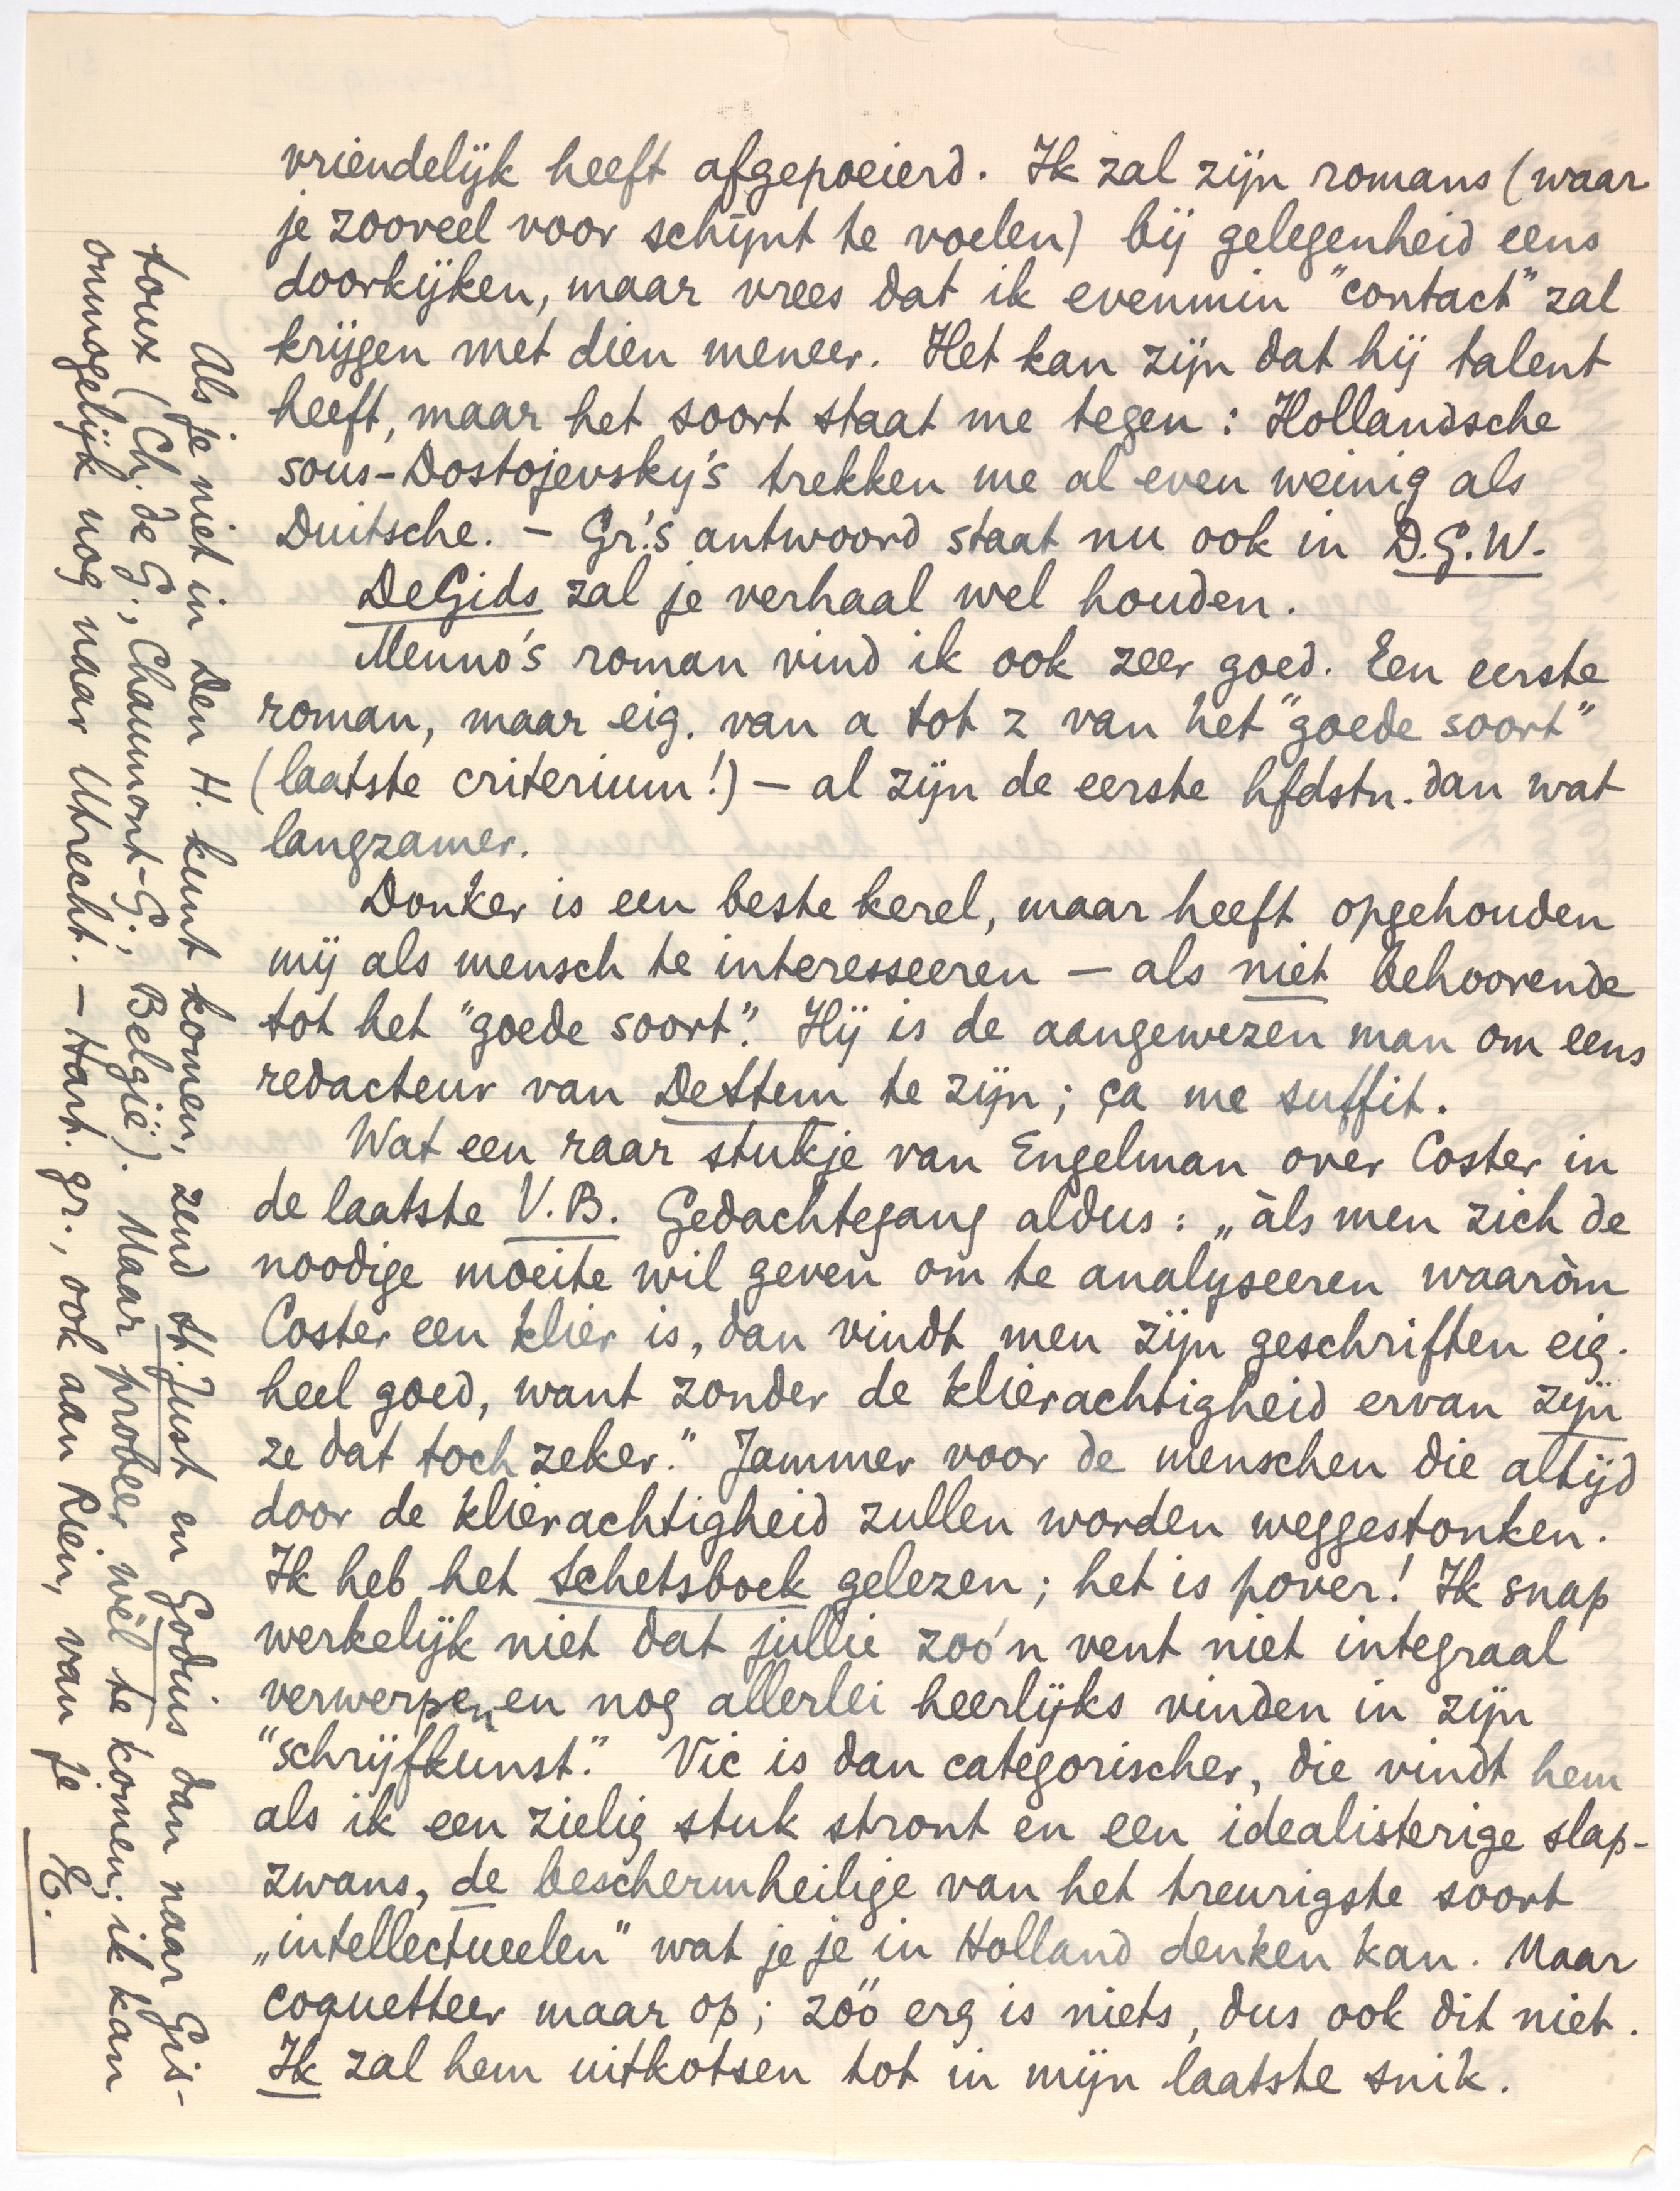 vriendelijk heeft afgepoeierd. Ik zal zijn romans (waar
je zooveel voor schijnt te voelen) bij gelegenheid eens
doorkijken, maar vrees dat ik evenmin "contact" zal
krijgen met dien meneer. Het kan zijn dat hij talent
heeft, maar het soort staat me tegen: Hollandsche
sous-Dostojevsky's trekken me al even weinig als
Duitsche. – Gr.'s antwoord staat nu ook in D.G.W.
De Gids zal je verhaal wel houden.
Menno's roman vind ik ook zeer goed. Een eerste
roman, maar eig. van a tot z van het "goede soort"
(laatste criterium!) – al zijn de eerste hfdstn. dan wat
langzamer.
Donker is een beste kerel, maar heeft opgehouden
mij als mensch te interesseeren – als niet behoorende
tot het "goede soort". Hij is de aangewezen man om eens
redacteur van De Stem te zijn; ça me suffit.
Wat een raar stukje van Engelman over Coster in
de laatste V.B. Gedachtegang aldus: „àls men zich de
noodige moeite wil geven om te analyseeren waaròm
Coster een klier is, dan vindt men zijn geschriften eig.
heel goed, want zonder de klierachtigheid ervan zijn
ze dat toch zeker." Jammer voor de menschen die altijd
door de klierachtigheid zullen worden weggestonken.
Ik heb het Schetsboek gelezen; het is pover! Ik snap
werkelijk niet dat jullie zoo'n vent niet integraal
verwerpen en nog allerlei heerlijks vinden in zijn
"schrijfkunst." Vic is dan categorischer, die vindt hem
als ik een zielig stuk stront en een idealisterige slap-
zwans, de beschermheilige van het treurigste soort
„intellectueelen" wat je je in Holland denken kan. Maar
coquetteer maar op; zóó erg is niets, dus ook dit niet.
Ik zal hem uitkotsen tot in mijn laatste snik.
Als je niet in Den H. kunt komen, zend St. Just en Godius dan naar Gis-
toux (Ch. de G., Chaumont-G., Belgïe). Maar probeer wèl te komen; ik kan
onmogelijk nog naar Utrecht. – Hart. gr., ook aan Rein, van je E.